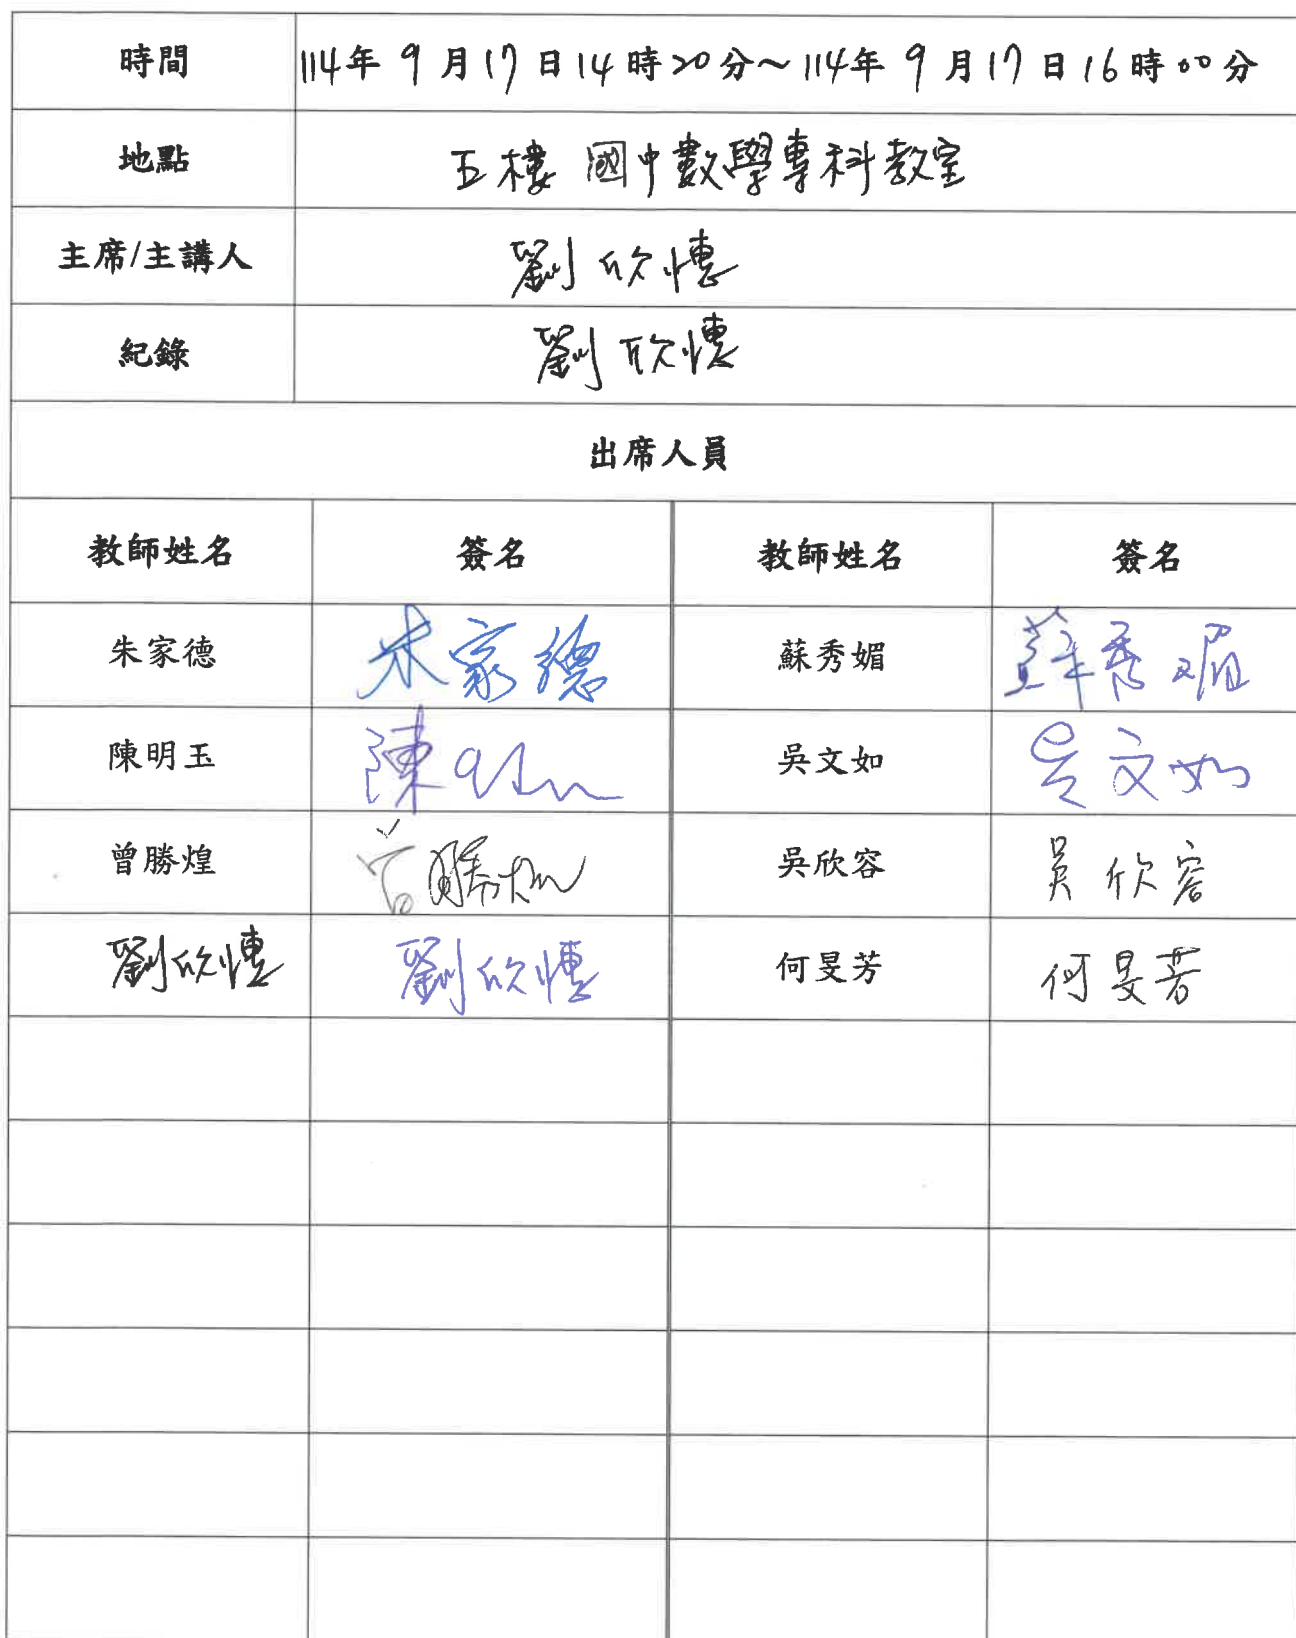 時間 114年 9月17日14時20分～114年 9月17日16時00分
地點 五樓 國中數學專科教室
主席/主講人 劉欣憓
紀錄 劉欣憓
出席人員
教師姓名 簽名 教師姓名 簽名
朱家德 朱家德 蘇秀媚 蘇秀媚
陳明玉 陳 吳文如 吳文如
曾勝煌 曾勝煌 吳欣容 吳欣容
劉欣憓 劉欣憓 何旻芳 何旻芳